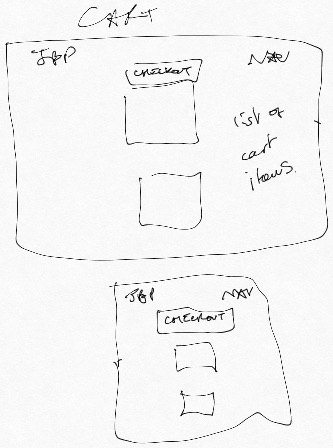 CART
JBP NAV
CHECKOUT
list of
cart
items.
JBP NAV
CHECKOUT